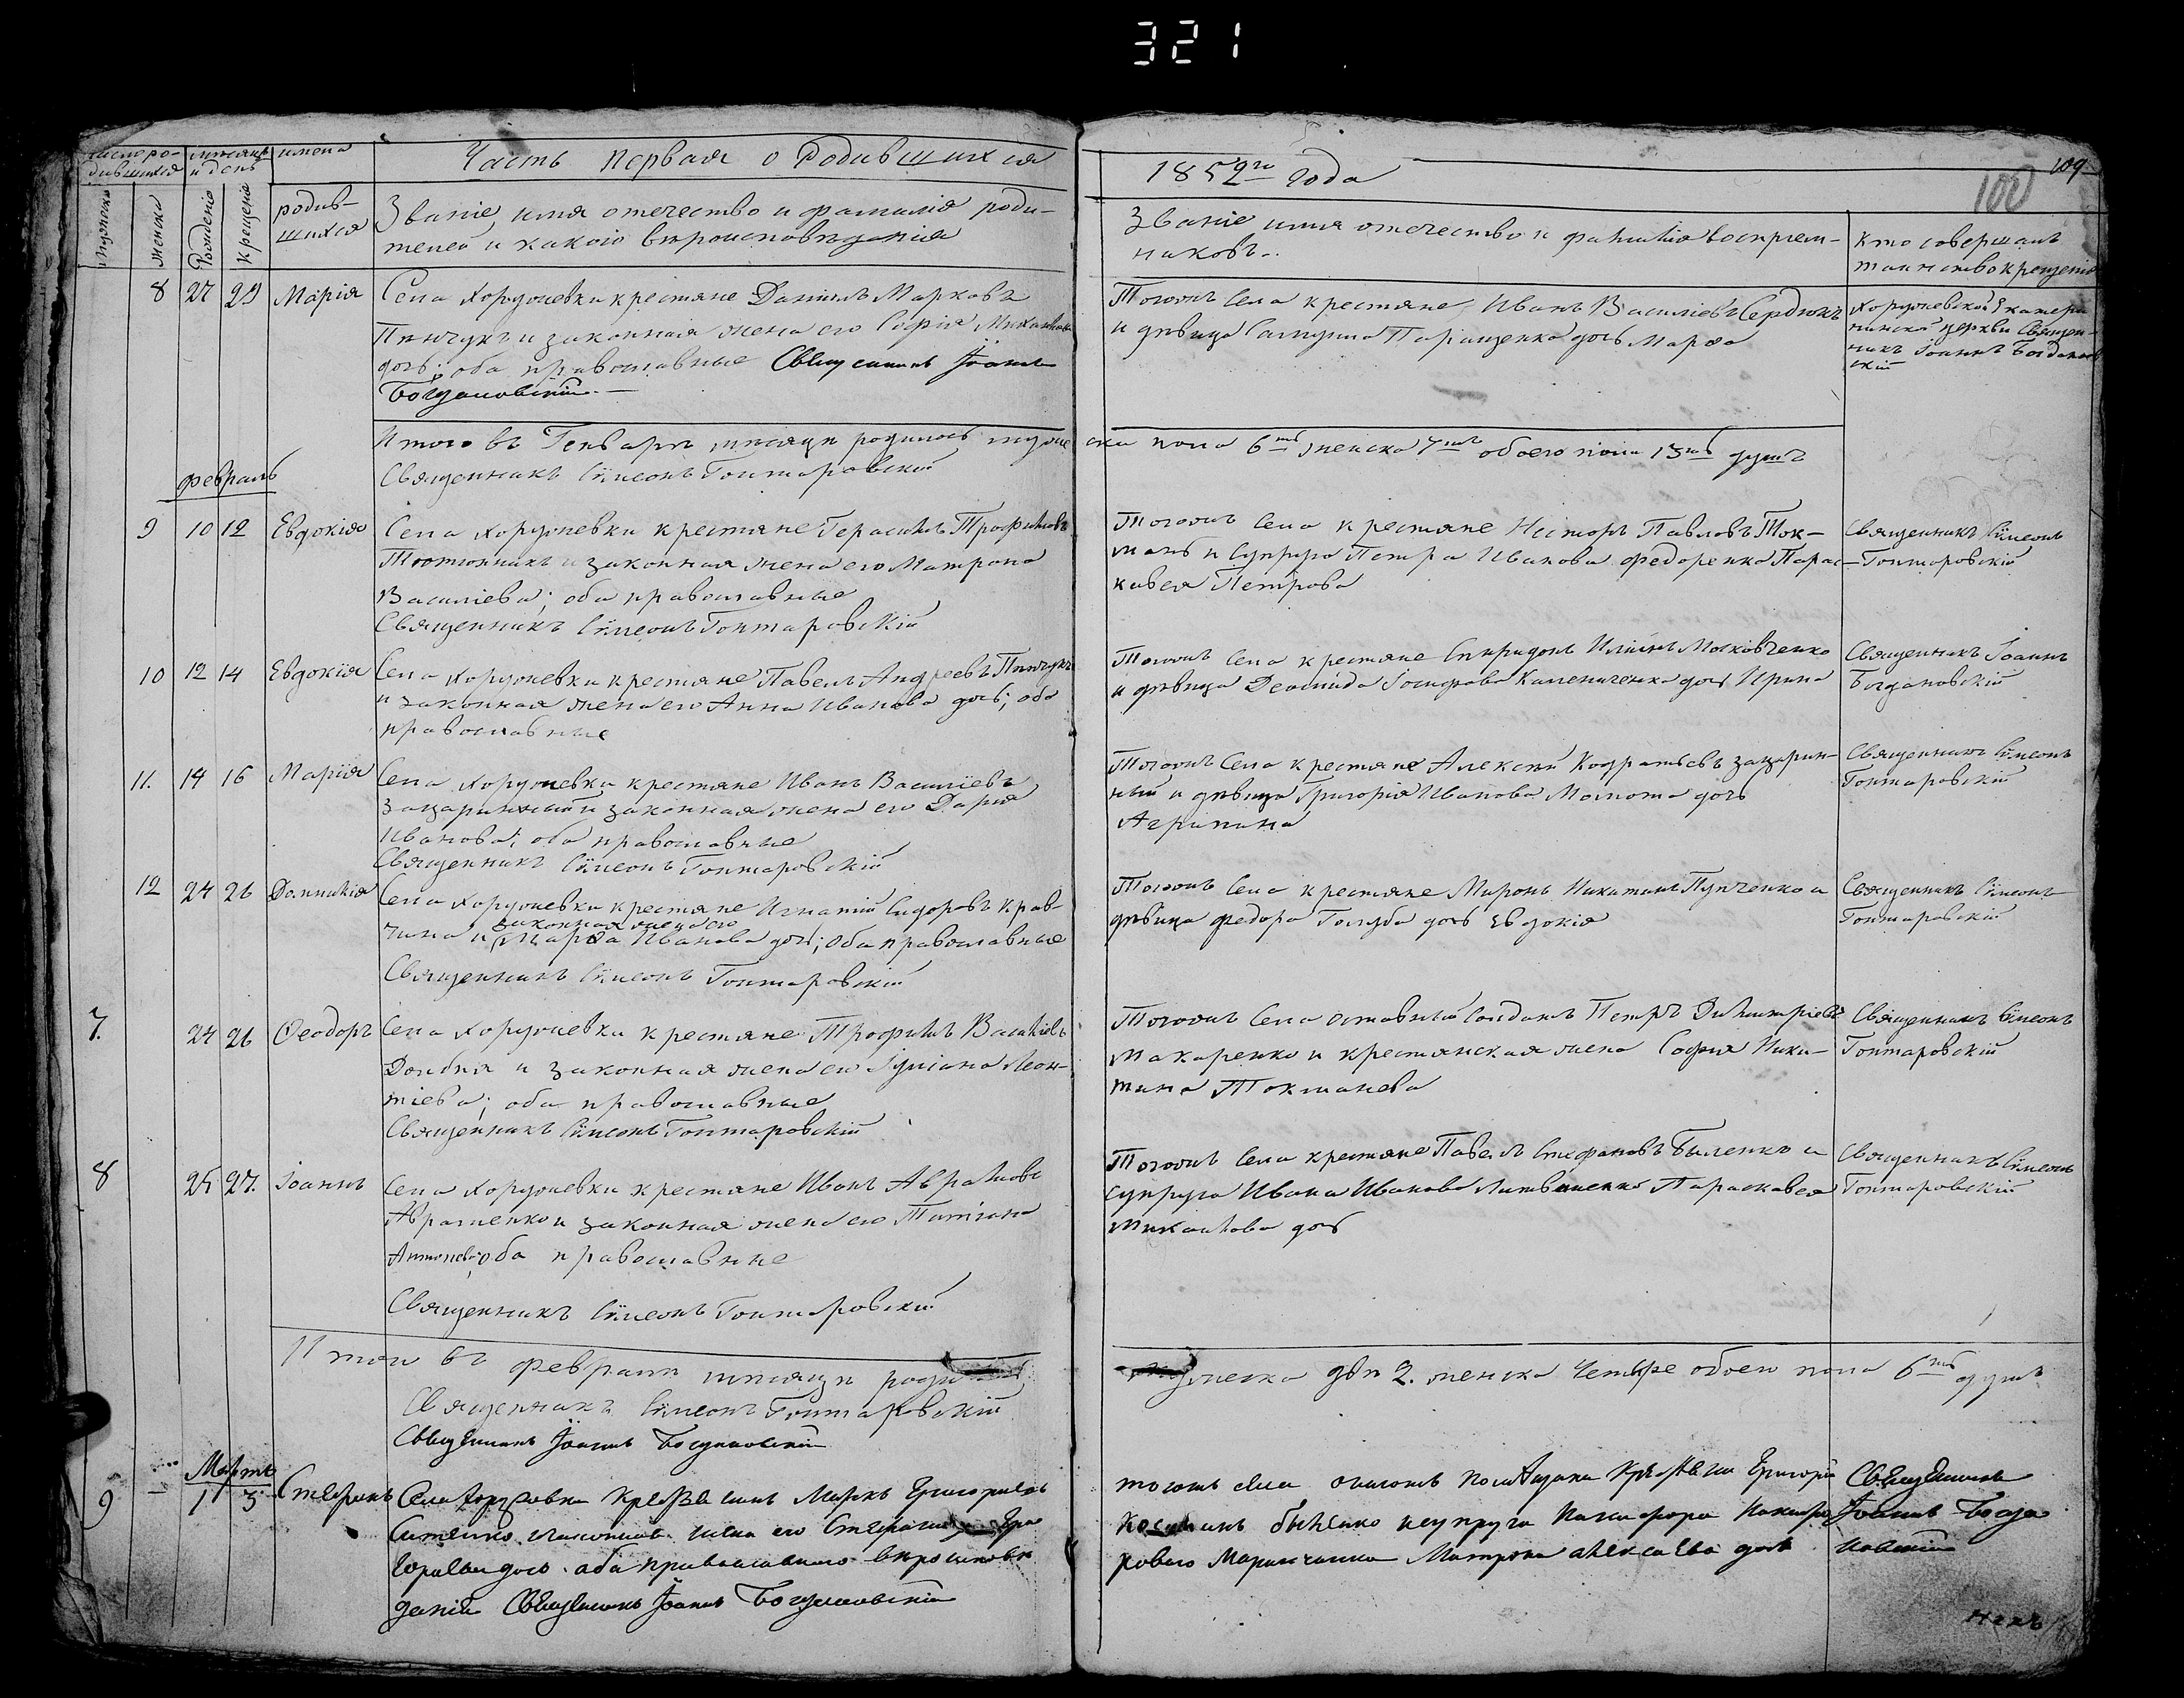 321
Часть первая о Родившихся
1852го года
109
100
число ро-
дившихся
мѣсяцъ
и день
имена
родив-
шихся
мужеска
женска
Рожденія
Крещенія
Званіе, имя отечество и фамилія роди-
телей и какого вѣроисповѣданія
Званіе имя отечество и фамилія воспріем-
никовъ.
Кто совершалъ
таинство крещенія
8 27 29 Марія
Села Хоружевки крестяне Даніилъ Марковъ
Пинчукъ и законная жена его Софія Михайлова
дочь; оба православные Священникъ Іоаннъ
Богдановскій
Тогожъ Села крестяне Иванъ Василіевъ Сердюкъ
и дѣвица Самуила Паращенка дочь Марфа
Хоружевской Екатери
нинской церкви Священ-
никъ Іоаннъ Богданов
скій
Итого въ Генварѣ мѣсяцѣ родилось мужеска пола 6ть женска 7мь обоего пола 13ть душъ
Священникъ Сѵмеонъ Гонтаровскій
февраль
9 10 12 Евдокія
Села Хоружевки крестяне Герасимъ Трофимовъ
и законная жена его Матрона
Василіева; оба православные
Священникъ Сѵмеонъ Гонтаровскій
Тогожъ Села крестяне Несторъ Павловъ Ток-
мань и Супруга Петра Иванова Федоренка Парас-
кавея Петрова
Священникъ Сѵмеонъ
Гонтаровскій
10 12 14 Евдокія
Села Хоружевки крестяне Павелъ Андреевъ Пинчукъ
и законная жена его Анна Иванова дочь; оба
православные
Тогожъ Села крестяне Спиридонъ Ильинъ Московченко
и дѣвица Деомида Іосифова Калениченка дочь Ирина
Священникъ Іоаннъ
Богдановскій
11. 14 16 Марія
Села Хоружевки крестяне Иванъ Василіевъ
Зацаринный и законная жена его Дарія
Иванова; оба православные
Священникъ Сѵмеонъ Гонтаровскій
Тогожъ Села крестяне Алексѣй Кодратьевъ Зацарин-
ный и дѣвица Григорія Иванова дочь
Агрипина
Священникъ Сѵмеонъ
Гонтаровскій
12 24 26 Домникія
Села Хоружевки крестяне Игнатій Сидоровъ Крав-
чина и законная жена его Марфа Иванова дочь; оба православные
Священникъ Сѵмеонъ Гонтаровскій
Тогожъ Села крестяне Миронъ Никитинъ Пупченко и
дѣвица Федора Голуба дочь Евдокія
Священникъ Сѵмеонъ
Гонтаровскій
7. 24 26 Ѳеодоръ
Села Хоружевки крестяне Трофимъ Василіевъ
Довбня и законная жена его Іуліана Леон-
тіева; оба православные
Священникъ Сѵмеонъ Гонтаровскій
Тогожъ Села отставный Солдатъ Петръ Димитріевъ
Макаренко и крестянская жена Софія Ники-
тина Токманева
Священникъ Сѵмеонъ
Гонтаровскій
8 25 27. Іоаннъ
Села Хоружевки крестяне Иванъ Аврамовъ
Авраменко и законная жена его Татіана
Антонова; оба православные
Священникъ Сѵмеонъ Гонтаровскій
Тогожъ Села крестяне Павелъ Стефановъ Быленко и
супруга Ивана Иванова Литвиненка Параскавея
Михайлова дочь
Священникъ Сѵмеонъ
Гонтаровскій
Итого въ февралѣ мѣсяцѣ мужеска двѣ 2. женска четыре обоего пола 6ть душъ
Священникъ Сѵмеонъ Гонтаровскій
Священникъ Іоаннъ Богдановскій
Мартъ
9 1 3 Стефанъ
Села Хоружовки Маркъ Григоріевъ
жена его
дочь оба православного вѣроисповѣ
данія Священникъ Іоаннъ Богдановскій
тогожъ села Григорій
супруга
Матрона Алексѣева дочь
Священникъ
Іоаннъ Богда
новскій